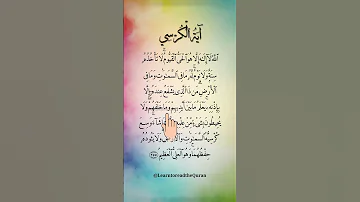 آيَةُ الْكُرْسِي
اللَّهُ لَا إِلَٰهَ إِلَّا هُوَ الْحَيُّ الْقَيُّومُ لَا تَأْخُذُهُ
سِنَةٌ وَلَا نَوْمٌ لَهُ مَا فِي السَّمَاوَاتِ وَمَا فِي
الْأَرْضِ مَن ذَا الَّذِي يَشْفَعُ عِندَهُ إِلَّا
بِإِذْنِهِ يَعْلَمُ مَا بَيْنَ أَيْدِيهِمْ وَمَا خَلْفَهُمْ وَلَا
يُحِيطُونَ بِشَيْءٍ مِّنْ عِلْمِهِ إِلَّا بِمَا شَاءَ وَسِعَ
كُرْسِيُّهُ السَّمَاوَاتِ وَالْأَرْضَ وَلَا يَئُودُهُ
حِفْظُهُمَا وَهُوَ الْعَلِيُّ الْعَظِيمُ ٢٥٥
@LearntoreadtheQuran